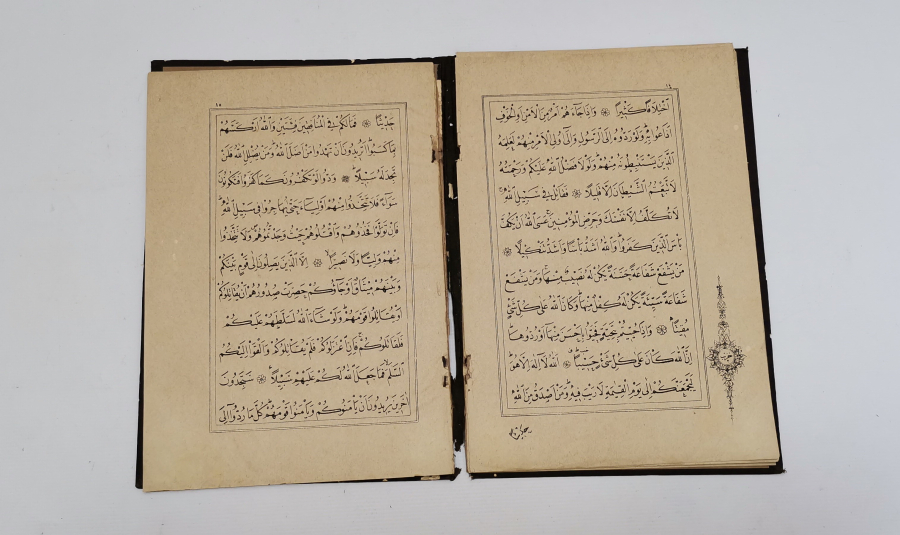 ١٤
اخْتِلَافًا كَثِيرًا ۞ وَاِذَا جَاءَهُمْ اَمْرٌ مِنَ الْاَمْنِ اَوِ الْخَوْفِ
اَذَاعُوا بِهِ وَلَوْ رَدُّوهُ اِلَى الرَّسُولِ وَاِلَى اُولِى الْاَمْرِ مِنْهُمْ لَعَلِمَهُ
الَّذِينَ يَسْتَنْبِطُونَهُ مِنْهُمْ وَلَوْلَا فَضْلُ اللّٰهِ عَلَيْكُمْ وَرَحْمَتُهُ
لَاتَّبَعْتُمُ الشَّيْطَانَ اِلَّا قَلِيلًا ۞ فَقَاتِلْ فِى سَبِيلِ اللّٰهِ
لَا تُكَلَّفُ اِلَّا نَفْسَكَ وَحَرِّضِ الْمُؤْمِنِينَ عَسَى اللّٰهُ اَنْ يَكُفَّ
بَاْسَ الَّذِينَ كَفَرُوا وَاللّٰهُ اَشَدُّ بَاْسًا وَاَشَدُّ تَنْكِيلًا ۞
مَنْ يَشْفَعْ شَفَاعَةً حَسَنَةً يَكُنْ لَهُ نَصِيبٌ مِنْهَا وَمَنْ يَشْفَعْ
شَفَاعَةً سَيِّئَةً يَكُنْ لَهُ كِفْلٌ مِنْهَا وَكَانَ اللّٰهُ عَلَى كُلِّ شَىْءٍ
مُقِيتًا ۞ وَاِذَا حُيِّيتُمْ بِتَحِيَّةٍ فَحَيُّوا بِاَحْسَنَ مِنْهَا اَوْ رُدُّوهَا
اِنَّ اللّٰهَ كَانَ عَلَى كُلِّ شَىْءٍ حَسِيبًا ۞ اَللّٰهُ لَا اِلٰهَ اِلَّا هُوَ
لَيَجْمَعَنَّكُمْ اِلَى يَوْمِ الْقِيٰمَةِ لَا رَيْبَ فِيهِ وَمَنْ اَصْدَقُ مِنَ اللّٰهِ
١٥
حَدِيثًا ۞ فَمَا لَكُمْ فِى الْمُنَافِقِينَ فِئَتَيْنِ وَاللّٰهُ اَرْكَسَهُمْ
بِمَا كَسَبُوا اَتُرِيدُونَ اَنْ تَهْدُوا مَنْ اَضَلَّ اللّٰهُ وَمَنْ يُضْلِلِ اللّٰهُ فَلَنْ
تَجِدَ لَهُ سَبِيلًا ۞ وَدُّوا لَوْ تَكْفُرُونَ كَمَا كَفَرُوا فَتَكُونُونَ
سَوَاءً فَلَا تَتَّخِذُوا مِنْهُمْ اَوْلِيَاءَ حَتّٰى يُهَاجِرُوا فِى سَبِيلِ اللّٰهِ
فَاِنْ تَوَلَّوْا فَخُذُوهُمْ وَاقْتُلُوهُمْ حَيْثُ وَجَدْتُمُوهُمْ وَلَا تَتَّخِذُوا
مِنْهُمْ وَلِيًّا وَلَا نَصِيرًا ۞ اِلَّا الَّذِينَ يَصِلُونَ اِلَى قَوْمٍ بَيْنَكُمْ
وَبَيْنَهُمْ مِيثَاقٌ اَوْ جَاؤُكُمْ حَصِرَتْ صُدُورُهُمْ اَنْ يُقَاتِلُوكُمْ
اَوْ يُقَاتِلُوا قَوْمَهُمْ وَلَوْ شَاءَ اللّٰهُ لَسَلَّطَهُمْ عَلَيْكُمْ
فَلَقَاتَلُوكُمْ فَاِنِ اعْتَزَلُوكُمْ فَلَمْ يُقَاتِلُوكُمْ وَاَلْقَوْا اِلَيْكُمُ
السَّلَمَ فَمَا جَعَلَ اللّٰهُ لَكُمْ عَلَيْهِمْ سَبِيلًا ۞ سَتَجِدُونَ
اٰخَرِينَ يُرِيدُونَ اَنْ يَاْمَنُوكُمْ وَيَاْمَنُوا قَوْمَهُمْ كُلَّ مَا رُدُّوا اِلَى